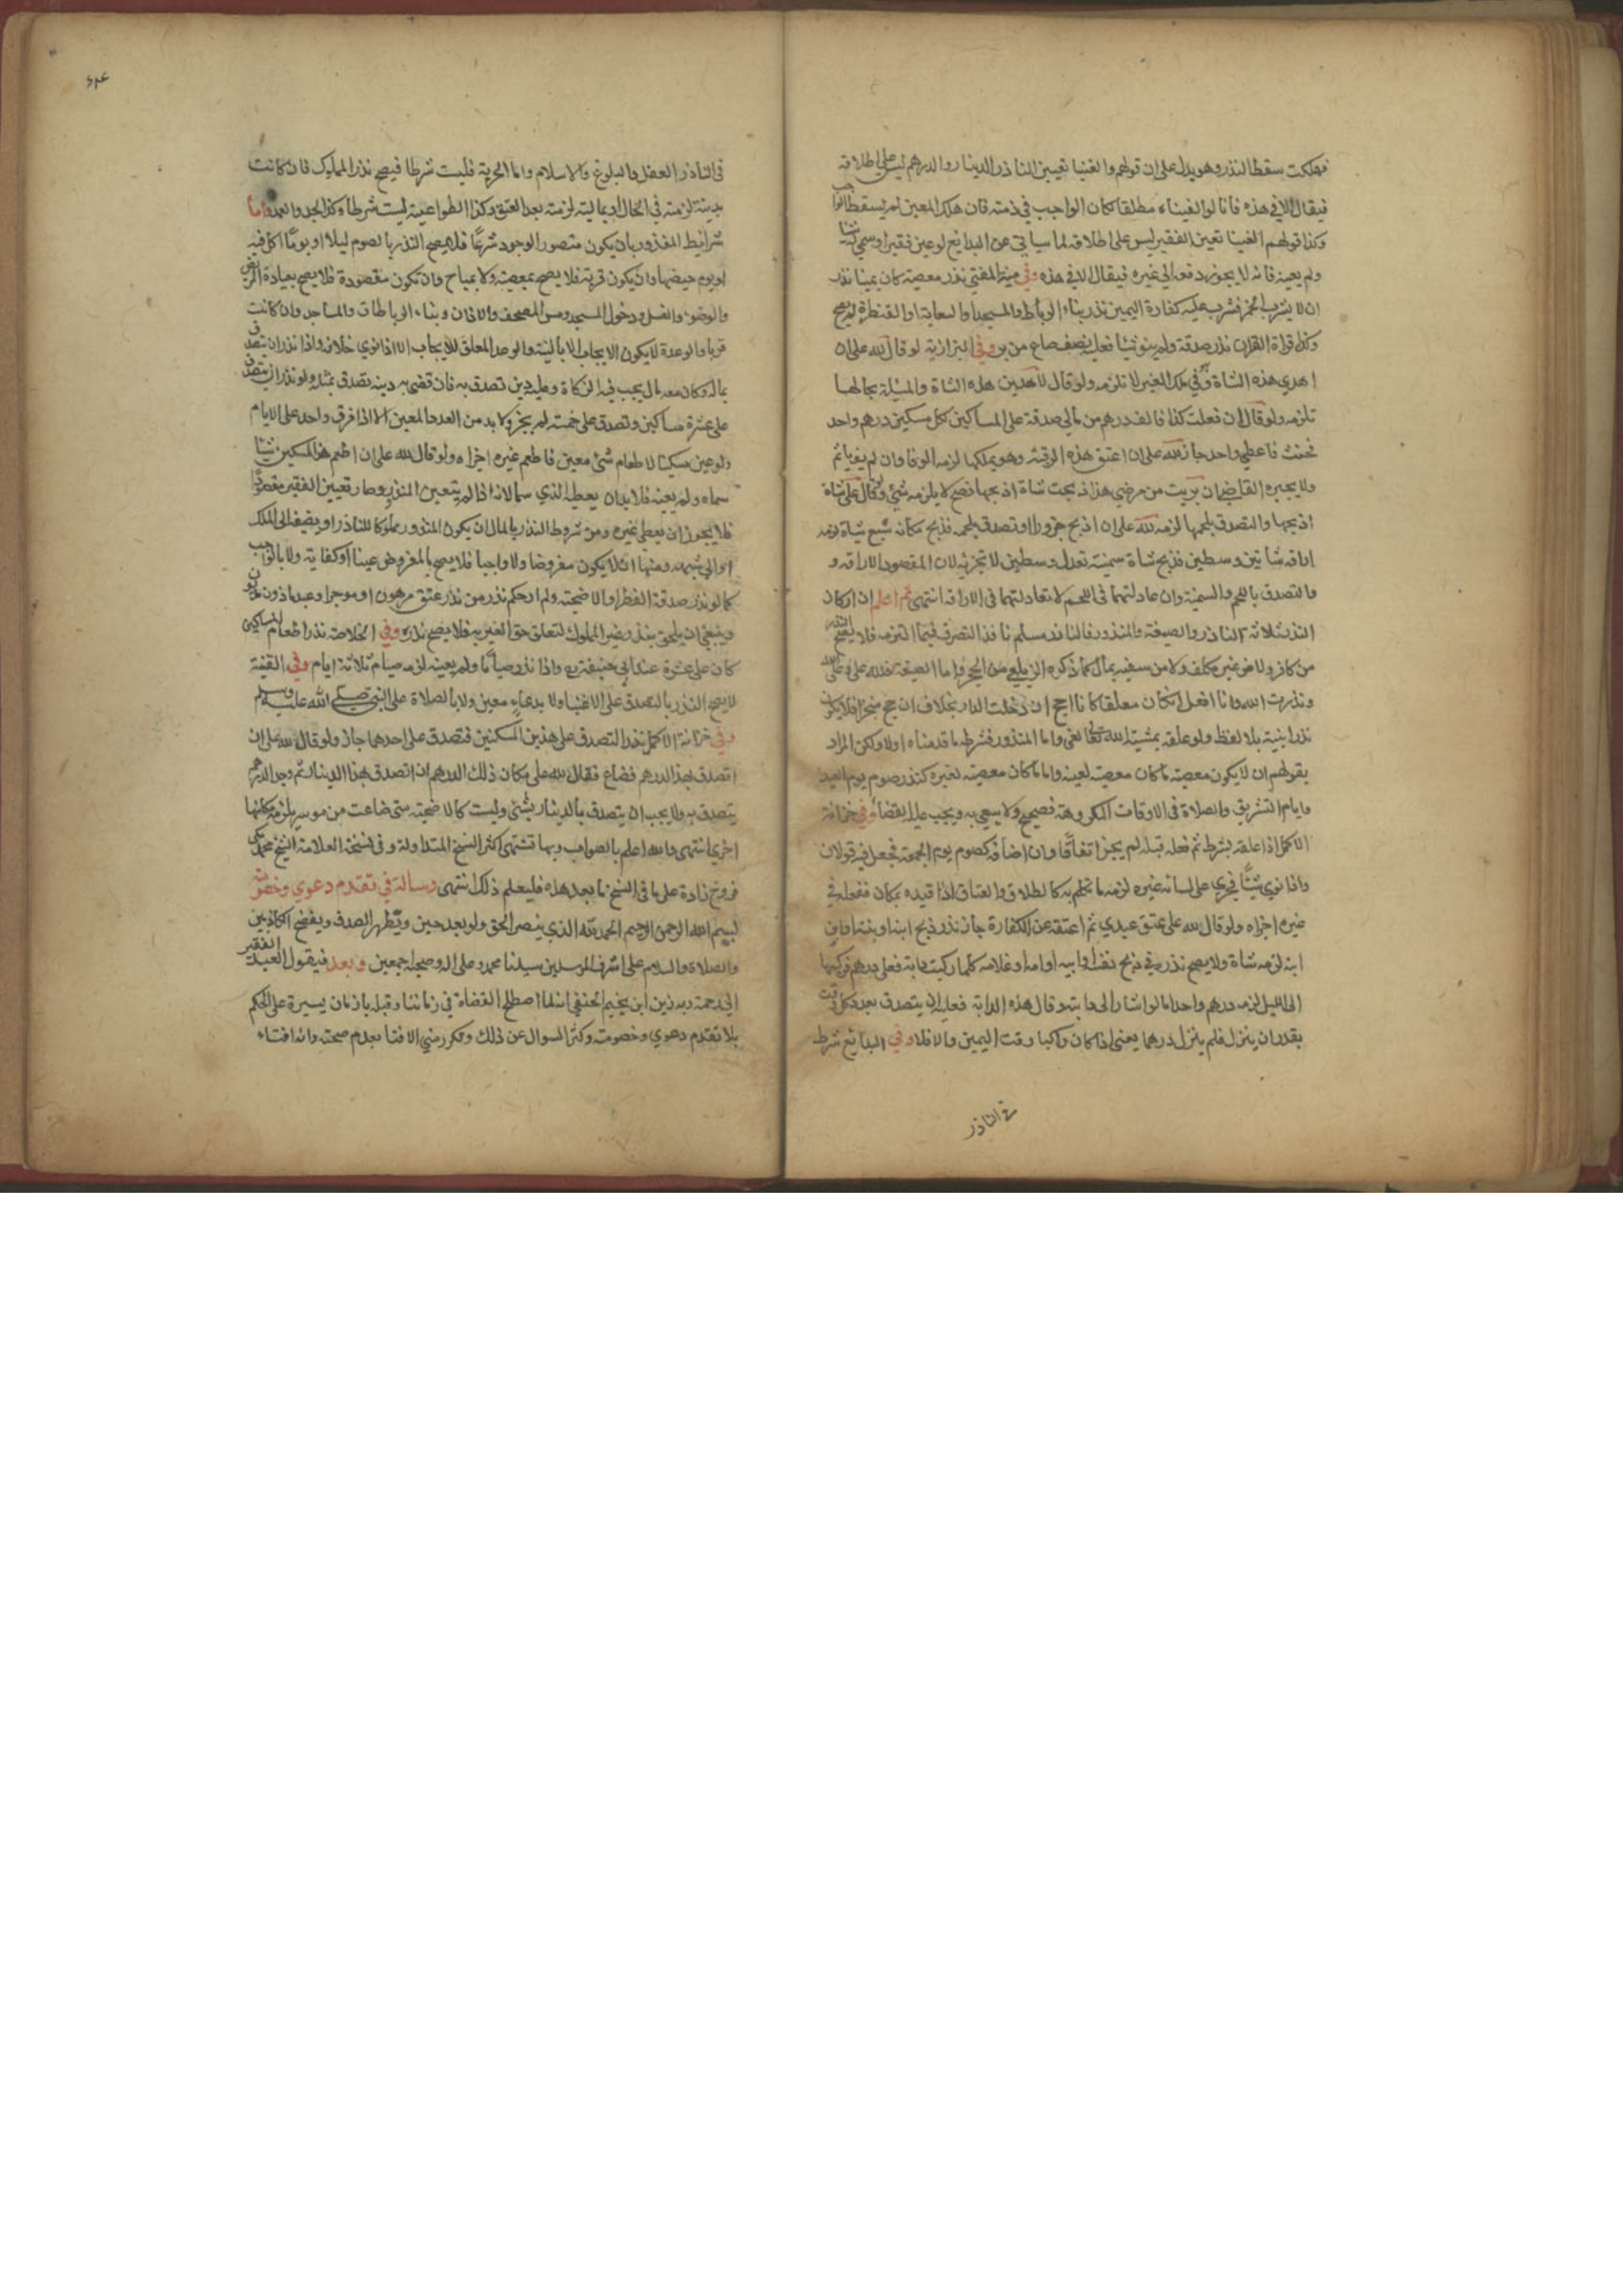 فهلكت سقط النذر وهو يدل على ان قولهم والغينا تعيين الناذر الدينار والدرهم ليس على اطلاقه
فيقال الا في هذه فانا لو الغيناه مطلقا لكان الواجب في ذمته فان هلك المعين لم يسقط الواجب
وكذا قولهم الغينا تعين الفقير ليس على اطلاقه لما سياتي عن البدايع لو عين فقيرا وسمي له شيا
ولم يعينه فانه لا يجوز دفعه الى غيره فيقال الا في هذه وفي منية المفتي نذر معصية كان يمينا نذر
ان لا يشرب الخمر فشرب عليه كفارة اليمين نذر بناء الرباط والمسجد او السقاية او القنطرة لم يصح
وكذا قراة القران نذر صدقة ولم ينو شيا فعليه نصف صاع من بر وفي البزازية لو قال لله على ان
اهدي هذه الشاة وهي ملك الغير لا تلزمه ولو قال لاهدين هذه الشاة والمسئلة بحالها
تلزمه ولو قال ان فعلت كذا فالف درهم من مالي صدقة على المساكين لكل مسكين درهم واحد
فحنث فاعطى واحد جاز لله على ان اعتق هذه الرقبة وهو يملكها لزمه الوفا وان لم يف ياثم
ولا يجبره القاضي ان بريت من مرضي هذا ذبحت شاة اذبحها فصح لا يلزمه شي ولو قال على شاة
اذبحها واتصدق بلحمها لزمه لله على ان اذبح جزورا واتصدق بلحمه فذبح مكانه سبع شياة لزمه
اراقة شاتين وسطين فذبح شاة سمينة تعدل وسطين لا تجزيه لان المقصود الاراقة و
والتصدق باللحم والسمينة وان عادلتهما في اللحم لا تعادلتهما في الاراقة انتهى ثم اعلم ان اركان
النذر ثلاثة الناذر والصيغة والمنذور فالناذر مسلم نافذ التصرف فيما التزمه فلا يصح النذر
من كافر ولا من غير مكلف ولا من سفيه بمال كما ذكره الزيلعي من الحجر واما الصيغة فلله على وعلى الله
ونذرت لله وانا افعل ان كان معلقا كانا احج ان دخلت الدار بخلاف ان حج منجزا فلا يكون
نذرا بنية بلا لفظ ولو علقه بمشيئة الله تعالى لغى واما المنذور فشرطه ما قدمناه اولا ولكن المراد
بقولهم ان لا يكون معصية ما كان معصية لعينه واما ما كان معصية لغيره كنذر صوم يوم العيد
وايام التشريق والصلاة في الاوقات المكروهة فصحيح ولا يسعى به ويجب عليه القضا وفي خزانة
الاكمل اذا علقه بشرط ثم فعله قبله لم يجز اتفاقا وان اضافه كصوم يوم الجمعة فجعل فيه قولان
واذا نوى شيا فجرى على لسانه غيره لزمه ما تكلم به كالطلاق والعتاق اذا قيده بمكان ففعله في
غيره اجزاه ولو قال لله على عتق عبدي ثم اعتقه عن الكفارة جاز نذر ذبح ابنه او بنته او ابن
ابنه لزمه شاة ولا يصح نذره في ذبح نفسه او ابيه او امه او غلامه كلما ركبت دابة فعلى درهم فركبها
الى الليل لزمه درهم واحد اما لو اشار الى دابته وقال هذه الدابة فعليه ان يتصدق بعد كل وقت
يقدر ان ينزل فلم ينزل درهما يعنى اذا كان راكبا وقت اليمين والا فلا وفي البدايع شرط
في الناذر
٤٣٤
في الناذر العقل والبلوغ والاسلام واما الحرية فليست شرطا فيصح نذر المملوك فان كانت
بدنية لزمته في الحال او مالية لزمته بعد العتق وكذا الطواعية ليست شرطا وكذا الجد والعمد واما
شرايط المنذور بان يكون متصور الوجود شرعا فلا يصح النذر بالصوم ليلا او يوما اكل فيه
او يوم حيضها وان يكون قربة فلا يصح بمعصية ولا بمباح وان تكون مقصودة فلا يصح بعيادة المريض
والوضوء والغسل ودخول المسجد ومس المصحف والاذان وبناء الرباطات والمساجد وان كانت
قربا والوعد لا يكون الايجاب الا بالنية والوعد المعلق للايجاب الا اذا نوى خلافه واذا نذر ان يتصدق
بماله وكان معه مال يجب فيه الزكاة وعليه دين تصدق به فان قضى به دينه تصدق بمثله ولو نذر ان يتصدق
على عشرة مساكين وتصدق على خمسة لم يجز ولا بد من العدد المعين الا اذا فرق واحد على الايام
ولو عين مسكينا لاطعام شئ معين فاطعم غيره اجزاه ولو قال لله على ان اطعم هذا المسكين شيا
سماه ولم يعينه فلا بد ان يعطيه الذي سما لانه اذا لم يتعين المنذور صار تعيين الفقير مقصودا
فلا يجوز ان يعطى غيره ومن شروط النذر بالمال ان يكون المنذور مملوكا للناذر او يضفه الى الملك
او الى سببه ومنها ان لا يكون مفروضا ولا واجبا فلا يصح بالمفروض عينا او كفاية ولا بالواجب
كما لو نذر صدقة الفطر او الاضحية ولم ار حكم نذر من نذر عتق مرهون او موجر او عبد ماذون مديون
وينبغي ان يلحق بنذر غير المملوك لتعلق حق الغير به فلا يصح نذره وفي الخلاصة نذر اطعام المساكين
كان على عشرة عند ابي حنيفة رح واذا نذر صياما ولم يعينه لزمه صيام ثلاثة ايام وفي القنية
لا يصح النذر بالتصدق على الاغنيا ولا بدعاء معين ولا بالصلاة على النبي صلى الله عليه وسلم
وفي خزانة الاكمل نذر التصدق على هذين المسكنين فتصدق على احدهما جاز ولو قال لله على ان
اتصدق بهذا الدرهم فضاع فقال لله على مكان ذلك الدرهم ان اتصدق بهذا الدينار ثم وجد الدرهم
يتصدق به ولا يجب ان يتصدق بالدينار بشئ وليست كالاضحية متى ضاعت من موسر يلزمه مكانها
اخرى انتهى والله اعلم بالصواب وبها تنتهى اكثر النسخ المتداولة وفي نسخة العلامة الشيخ محمد مكي
فروخ زادة على ما في النسخ ما بعد هذه فليعلم ذلك انتهى رسالة في تقدم دعوي وخصومة
بسم الله الرحمن الرحيم الحمد لله الذي ينصر الحق ولو بعد حين ويظهر الصدق ويفضح الكاذبين
والصلاة والسلام على اشرف المرسلين سيدنا محمد وعلى اله وصحبه اجمعين وبعد فيقول العبد الفقير
الى رحمة ربه زين ابن نجيم الحنفي انه لما اصطلح القضاة في زماننا وقبله بازمان يسيرة على الحكم
بلا تقدم دعوي وخصومة وكثر السوال عن ذلك وتكرر مني الافتا بعدم صحته وانه افتاء